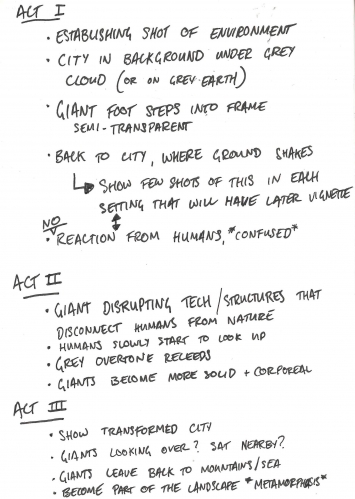 ACT I
• ESTABLISHING SHOT OF ENVIRONMENT
• CITY IN BACKGROUND UNDER GREY
CLOUD (OR ON GREY EARTH)
• GIANT FOOT STEPS INTO FRAME
SEMI-TRANSPARENT
• BACK TO CITY, WHERE GROUND SHAKES
↳ SHOW FEW SHOTS OF THIS IN EACH
SETTING THAT WILL HAVE LATER VIGNETTE
NO ↕
• REACTION FROM HUMANS, *CONFUSED*
ACT II
• GIANT DISRUPTING TECH/STRUCTURES THAT
DISCONNECT HUMANS FROM NATURE
• HUMANS SLOWLY START TO LOOK UP
• GREY OVERTONE RECEEDS
• GIANTS BECOME MORE SOLID + CORPOREAL
ACT III
• SHOW TRANSFORMED CITY
• GIANTS LOOKING OVER? SAT NEARBY?
• GIANTS LEAVE BACK TO MOUNTAINS/SEA
• BECOME PART OF THE LANDSCAPE *METAMORPHASIS*